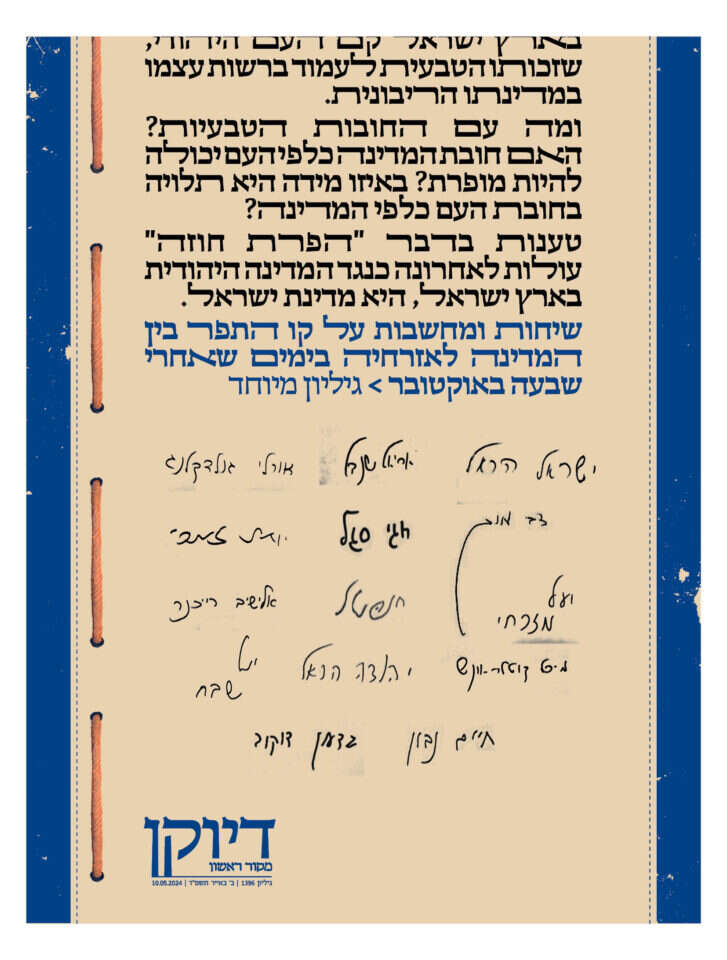 בארץ ישראל קם העם היהודי,
שזכותו הטבעית לעמוד ברשות עצמו
במדינתו הריבונית.
ומה עם החובות הטבעיות?
האם חובת המדינה כלפי העם יכולה
להיות מופרת? באיזו מידה היא תלויה
בחובת העם כלפי המדינה?
טענות בדבר "הפרת חוזה"
עולות לאחרונה כנגד המדינה היהודית
בארץ ישראל, היא מדינת ישראל.
שיחות ומחשבות על קו התפר בין
המדינה לאזרחיה בימים שאחרי
שבעה באוקטובר > גיליון מיוחד
ישראל הראל
אריאל שנבל
אורלי גולדקלנג
חגי סגל
אלישיב רייכנר
מזרחי
יהודה
שבח
חיים נבון
דיוקן
מקור ראשון
גיליון 1396 | ב' באייר תשפ"ד | 10.05.2024